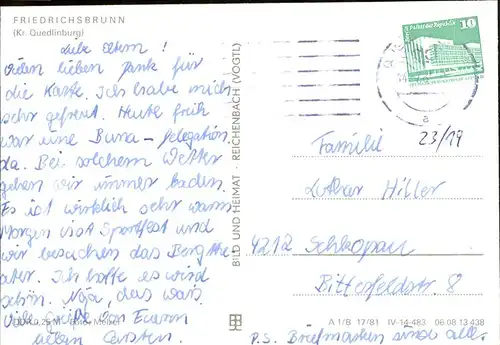 FRIEDRICHSBRUNN
(Kr. Quedlinburg)
Liebe Eltern!
Vielen lieben Dank für
die Karte. Ich habe mich
sehr gefreut. Heute früh
war eine Buna-Delegation
da. Bei solchem Wetter
gehen wir immer baden.
Es ist wirklich sehr warm.
Morgen ist Sportfest und
wir besuchen das Bergthe-
ater. Ich hoffe es wird
schön. Naja, das wars.
Viele Grüße von Eurem
lieben Carsten.
BILD UND HEIMAT · REICHENBACH (VOGTL)
Palast der Republik
10
23/19
Familie
Lothar Hiller
4212 Schkopau
Bitterfeldstr. 8
A 1/B 17/81 IV-14-483 06 08 13 438
P.S. Briefmarken sind alle.